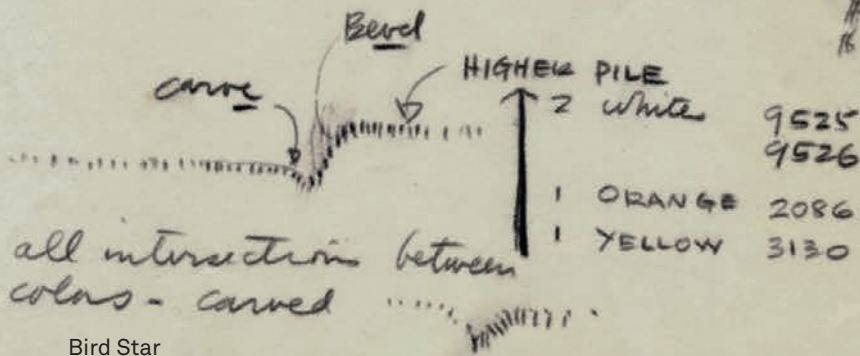 Bevel
carve
HIGHER PILE
2 white 9525
9526
1 ORANGE 2086
1 YELLOW 3130
all intersections between
colors - carved
Bird Star